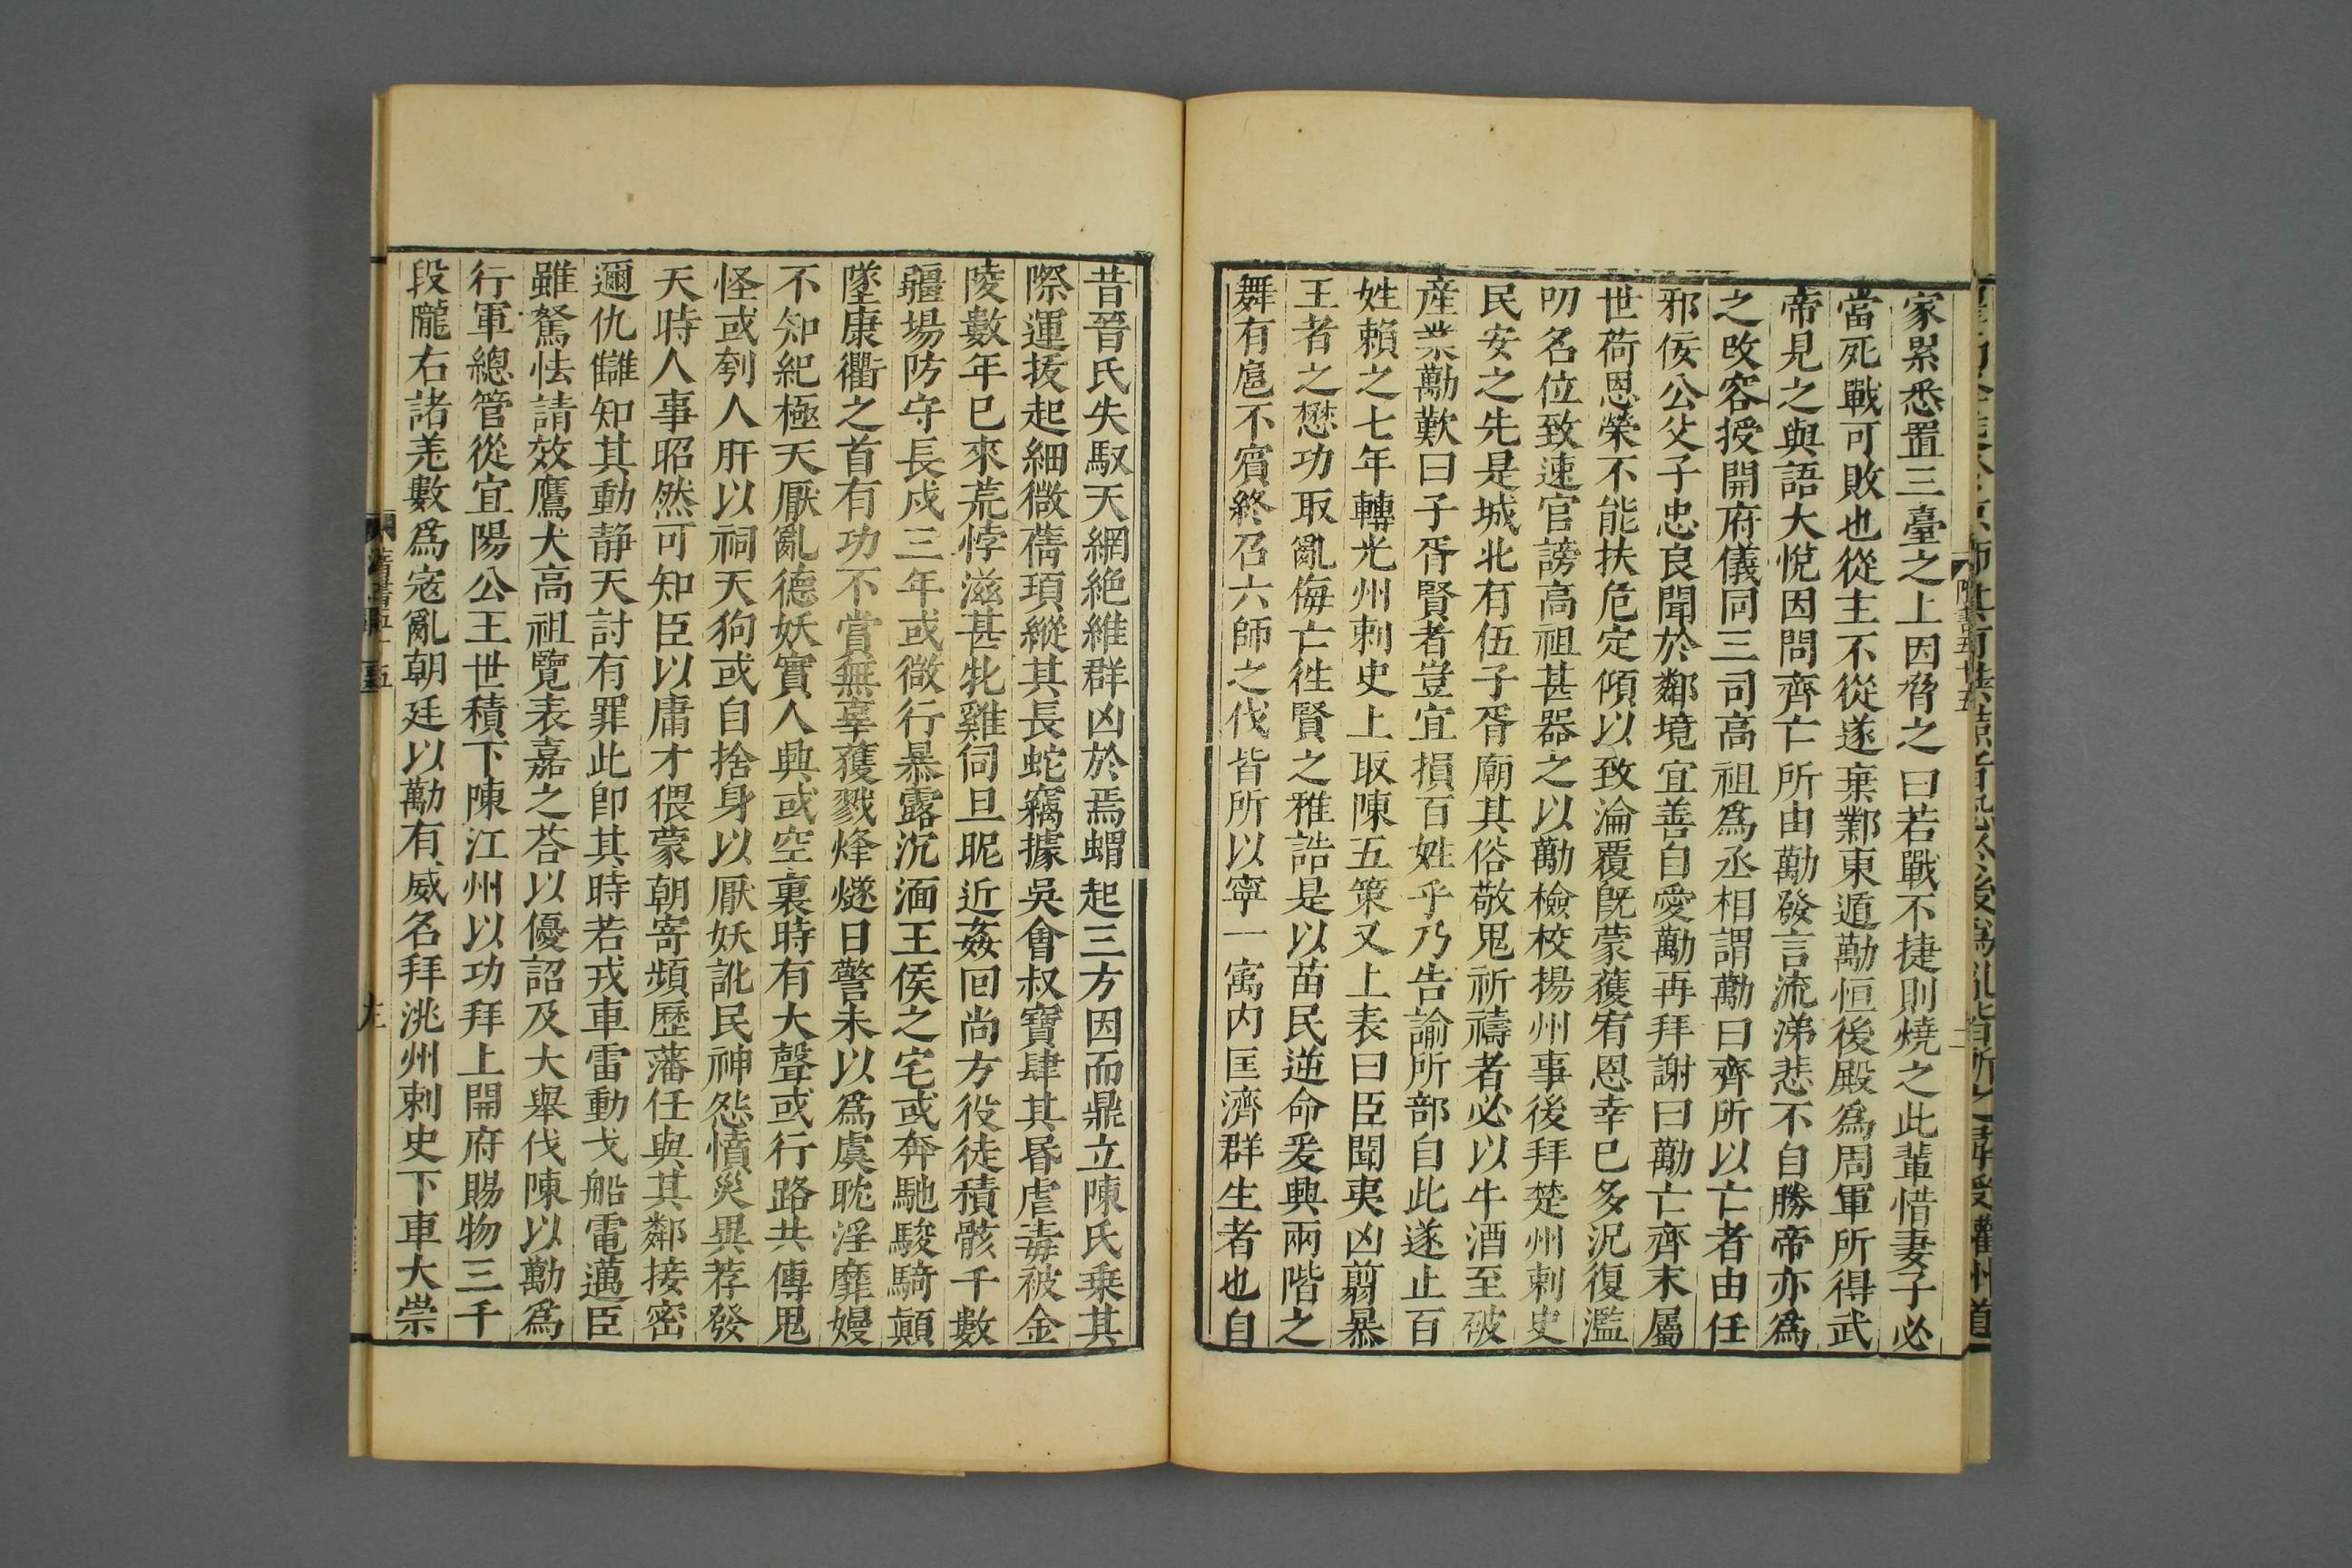 家累悉置三臺之上因脅之曰若戰不捷則燒之此輩惜妻子必
當死戰可敗也從主不從遂棄鄴東遁勱恒後殿爲周軍所得武
帝見之與語大悅因問齊亡所由勱發言流涕悲不自勝帝亦爲
之改容授開府儀同三司高祖爲丞相謂勱曰齊所以亡者由任
邪佞公父子忠良聞於鄰境宜善自愛勱再拜謝曰勱亡齊末屬
世荷恩榮不能扶危定傾以致淪覆旣蒙獲宥恩幸已多況復濫
叨名位致速官謗高祖甚器之以勱檢校揚州事後拜楚州刺史
民安之先是城北有伍子胥廟其俗敬鬼祈禱者必以牛酒至破
産業勱歎曰子胥賢者豈宜損百姓乎乃告諭所部自此遂止百
姓賴之七年轉光州刺史上取陳五策又上表曰臣聞夷凶翦暴
王者之懋功取亂侮亡徃賢之雅誥是以苗民逆命爰興兩階之
舞有扈不賓終召六師之伐皆所以寧一㝢内匡濟群生者也自
昔晉氏失馭天網絶維群凶於焉蝟起三方因而鼎立陳氏乗其
際運拔起細微蒨頊縱其長蛇竊據吳會叔寶肆其昬虐毒被金
陵數年已來荒悖滋甚牝雞伺旦昵近姦回尚方役徒積骸千數
疆場防守長戍三年或微行暴露沉湎王侯之宅或奔馳駿騎顛
墜康衢之首有功不賞無辜獲戮烽燧日警未以爲虞耽淫靡嫚
不知紀極天厭亂德妖實人興或空裏時有大聲或行路共傳鬼
怪或刳人肝以祠天狗或自捨身以厭妖訛民神怨憤災異荐發
天時人事昭然可知臣以庸才猥蒙朝寄頻歷藩任與其鄰接密
邇仇讎知其動静天討有罪此卽其時若戎車雷動戈船電邁臣
雖駑怯請效鷹犬高祖覽表嘉之荅以優詔及大舉伐陳以勱爲
行軍總管從宜陽公王世積下陳江州以功拜上開府賜物三千
段隴右諸羌數爲寇亂朝廷以勱有威名拜洮州刺史下車大崇